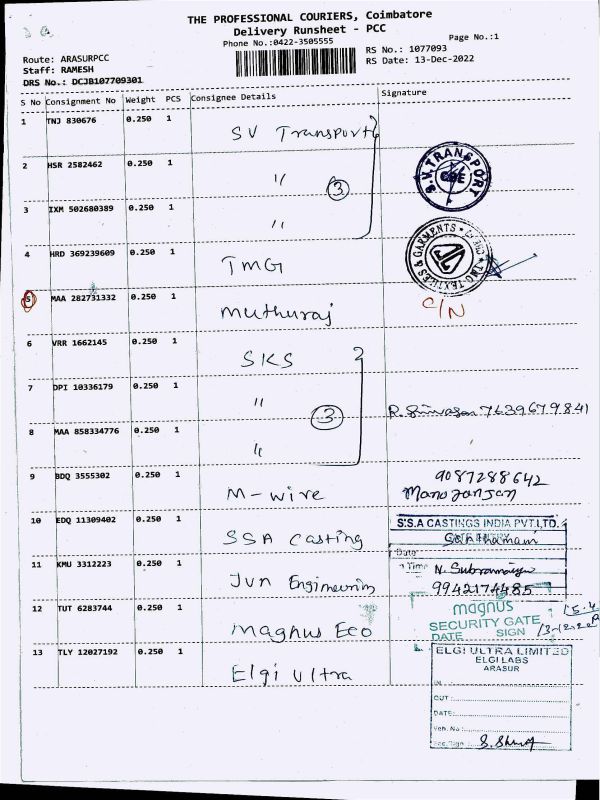 THE PROFESSIONAL COURIERS, Coimbatore
Delivery Runsheet - PCC
Phone No.:0422-3505555
Page No.:1
Route: ARASURPCC
Staff: RAMESH
DRS No.: DCJB107709301
RS No.: 1077093
RS Date: 13-Dec-2022
S No Consignment No Weight PCS Consignee Details Signature
1 TNJ 830676 0.250 1 SV Transport
2 HSR 2582462 0.250 1 " 3 S.V. TRANSPORT CBE
3 IXM 502680389 0.250 1 "
4 HRD 369239609 0.250 1 TMG
5 MAA 282731332 0.250 1 Muthuraj C/N
6 VRR 1662145 0.250 1 SKS
7 DPI 10336179 0.250 1 " 3 7639679841
8 MAA 858334776 0.250 1 "
9 BDQ 3555302 0.250 1 M-wire 9087288642
Manoranjan
10 EDQ 11309402 0.250 1 SSA Casting S.S.A CASTINGS INDIA PVT.LTD.
Date
11 KMU 3312223 0.250 1 Jvn Engineering Time N.
9942174485
12 TUT 6283744 0.250 1 Magnus Eco magnus
SECURITY GATE
DATE SIGN
13 TLY 12027192 0.250 1 Elgi Ultra ELGI ULTRA LIMITED
ELGI LABS
ARASUR
IN
OUT
DATE
Veh. No